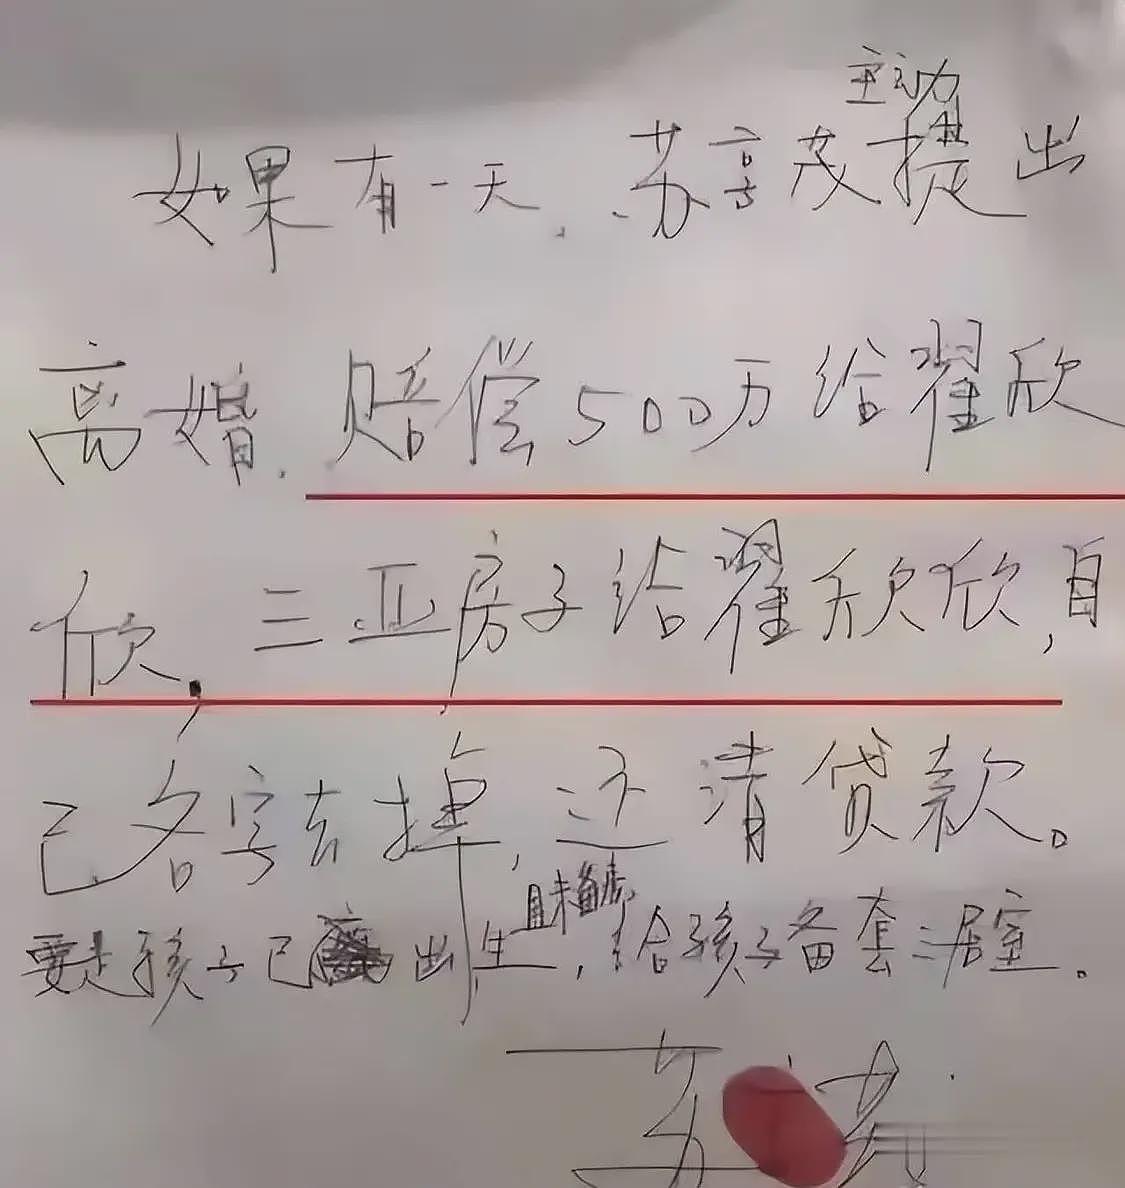 如果有一天，苏享茂主动提出
离婚，赔偿500万给翟欣
欣，三亚房子给翟欣欣，自
己名字去掉，还清贷款。
要是孩子已出生，且未离婚，给孩子备套二居室。
苏享茂